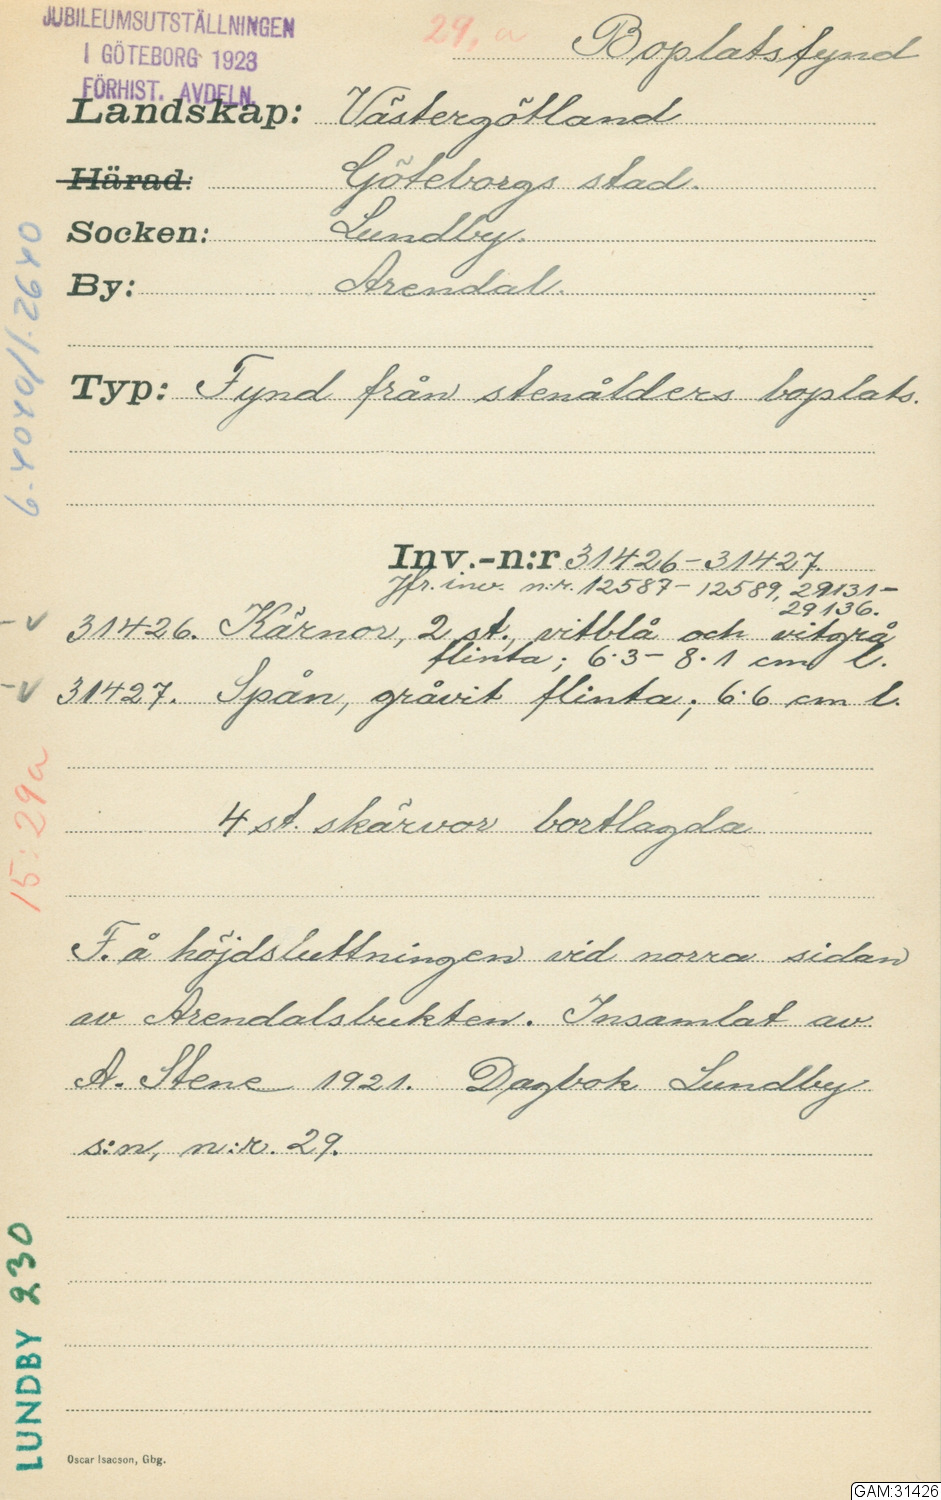 JUBILEUMSUTSTÄLLNINGEN
I GÖTEBORG 1923
FÖRHIST. AVDELN.
29, a
Boplatsfynd
Landskap: Västergötland
Härad: Göteborgs stad.
Socken: Lundby.
By: Arendal.
Typ: Fynd från stenålders boplats.
Inv.-n:r 31426-31427.
Jfr. inv. n:r. 12587-12589, 29131-
29136.
31426. Kärnor, 2 st., vitblå och vitgrå
flinta; 6·3-8·1 cm l.
31427. Spån, gråvit flinta; 6·6 cm l.
4 st. skärvor bortlagda
F. å höjdsluttningen vid norra sidan
av Arendalsbukten. Insamlat av
A. Stene 1921. Dagbok Lundby
s:n, n:r. 29.
6·4040/1·2640
15:29a
LUNDBY 230
Oscar Isacson, Gbg.
GAM:31426